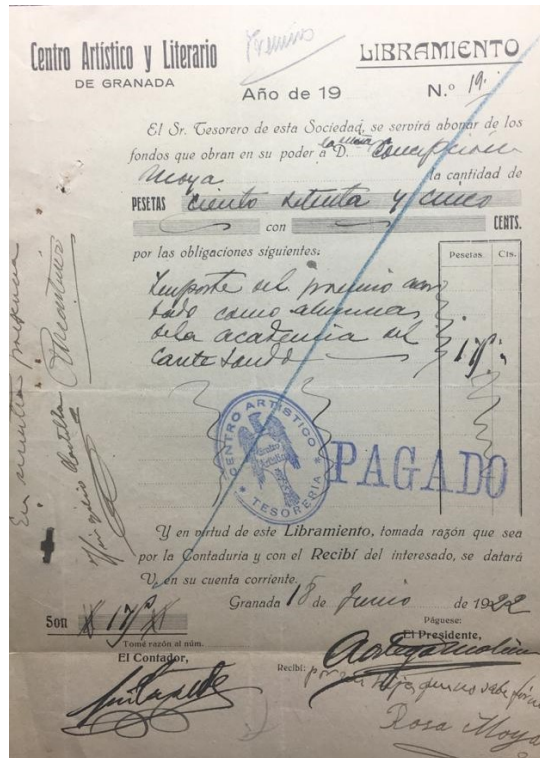 Centro Artístico y Literario
DE GRANADA
Premios
LIBRAMIENTO
Año de 19
N.º 19.
El Sr. Tesorero de esta Sociedad, se servirá abonar de los
fondos que obran en su poder a D. la niña Concepción
Moya la cantidad de
PESETAS ciento setenta y cinco
con CENTS.
por las obligaciones siguientes:
Pesetas. Cts.
Importe del premio acor
dado como alumna
de la academia del
Cante Jondo
175
CENTRO ARTISTICO
TESORERIA
PAGADO
Y en virtud de este Libramiento, tomada razón que sea
por la Contaduría y con el Recibí del interesado, se datará
V. en su cuenta corriente.
Granada 15 de Junio de 1922
Son 175
Tomé razón al núm.
El Contador,
Páguese:
El Presidente,
Recibí:
por mi hija que no sabe firmar
Rosa Moya
En nuestra presencia